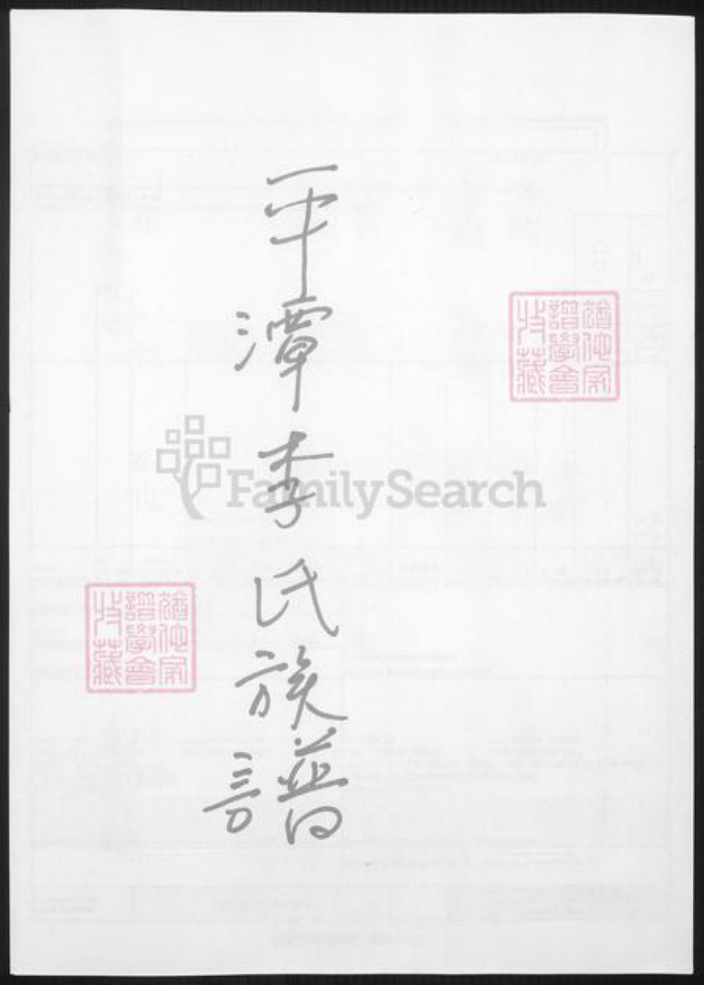 平潭李氏族譜
猶他家
譜學會
收藏
猶他家
譜學會
收藏
FamilySearch